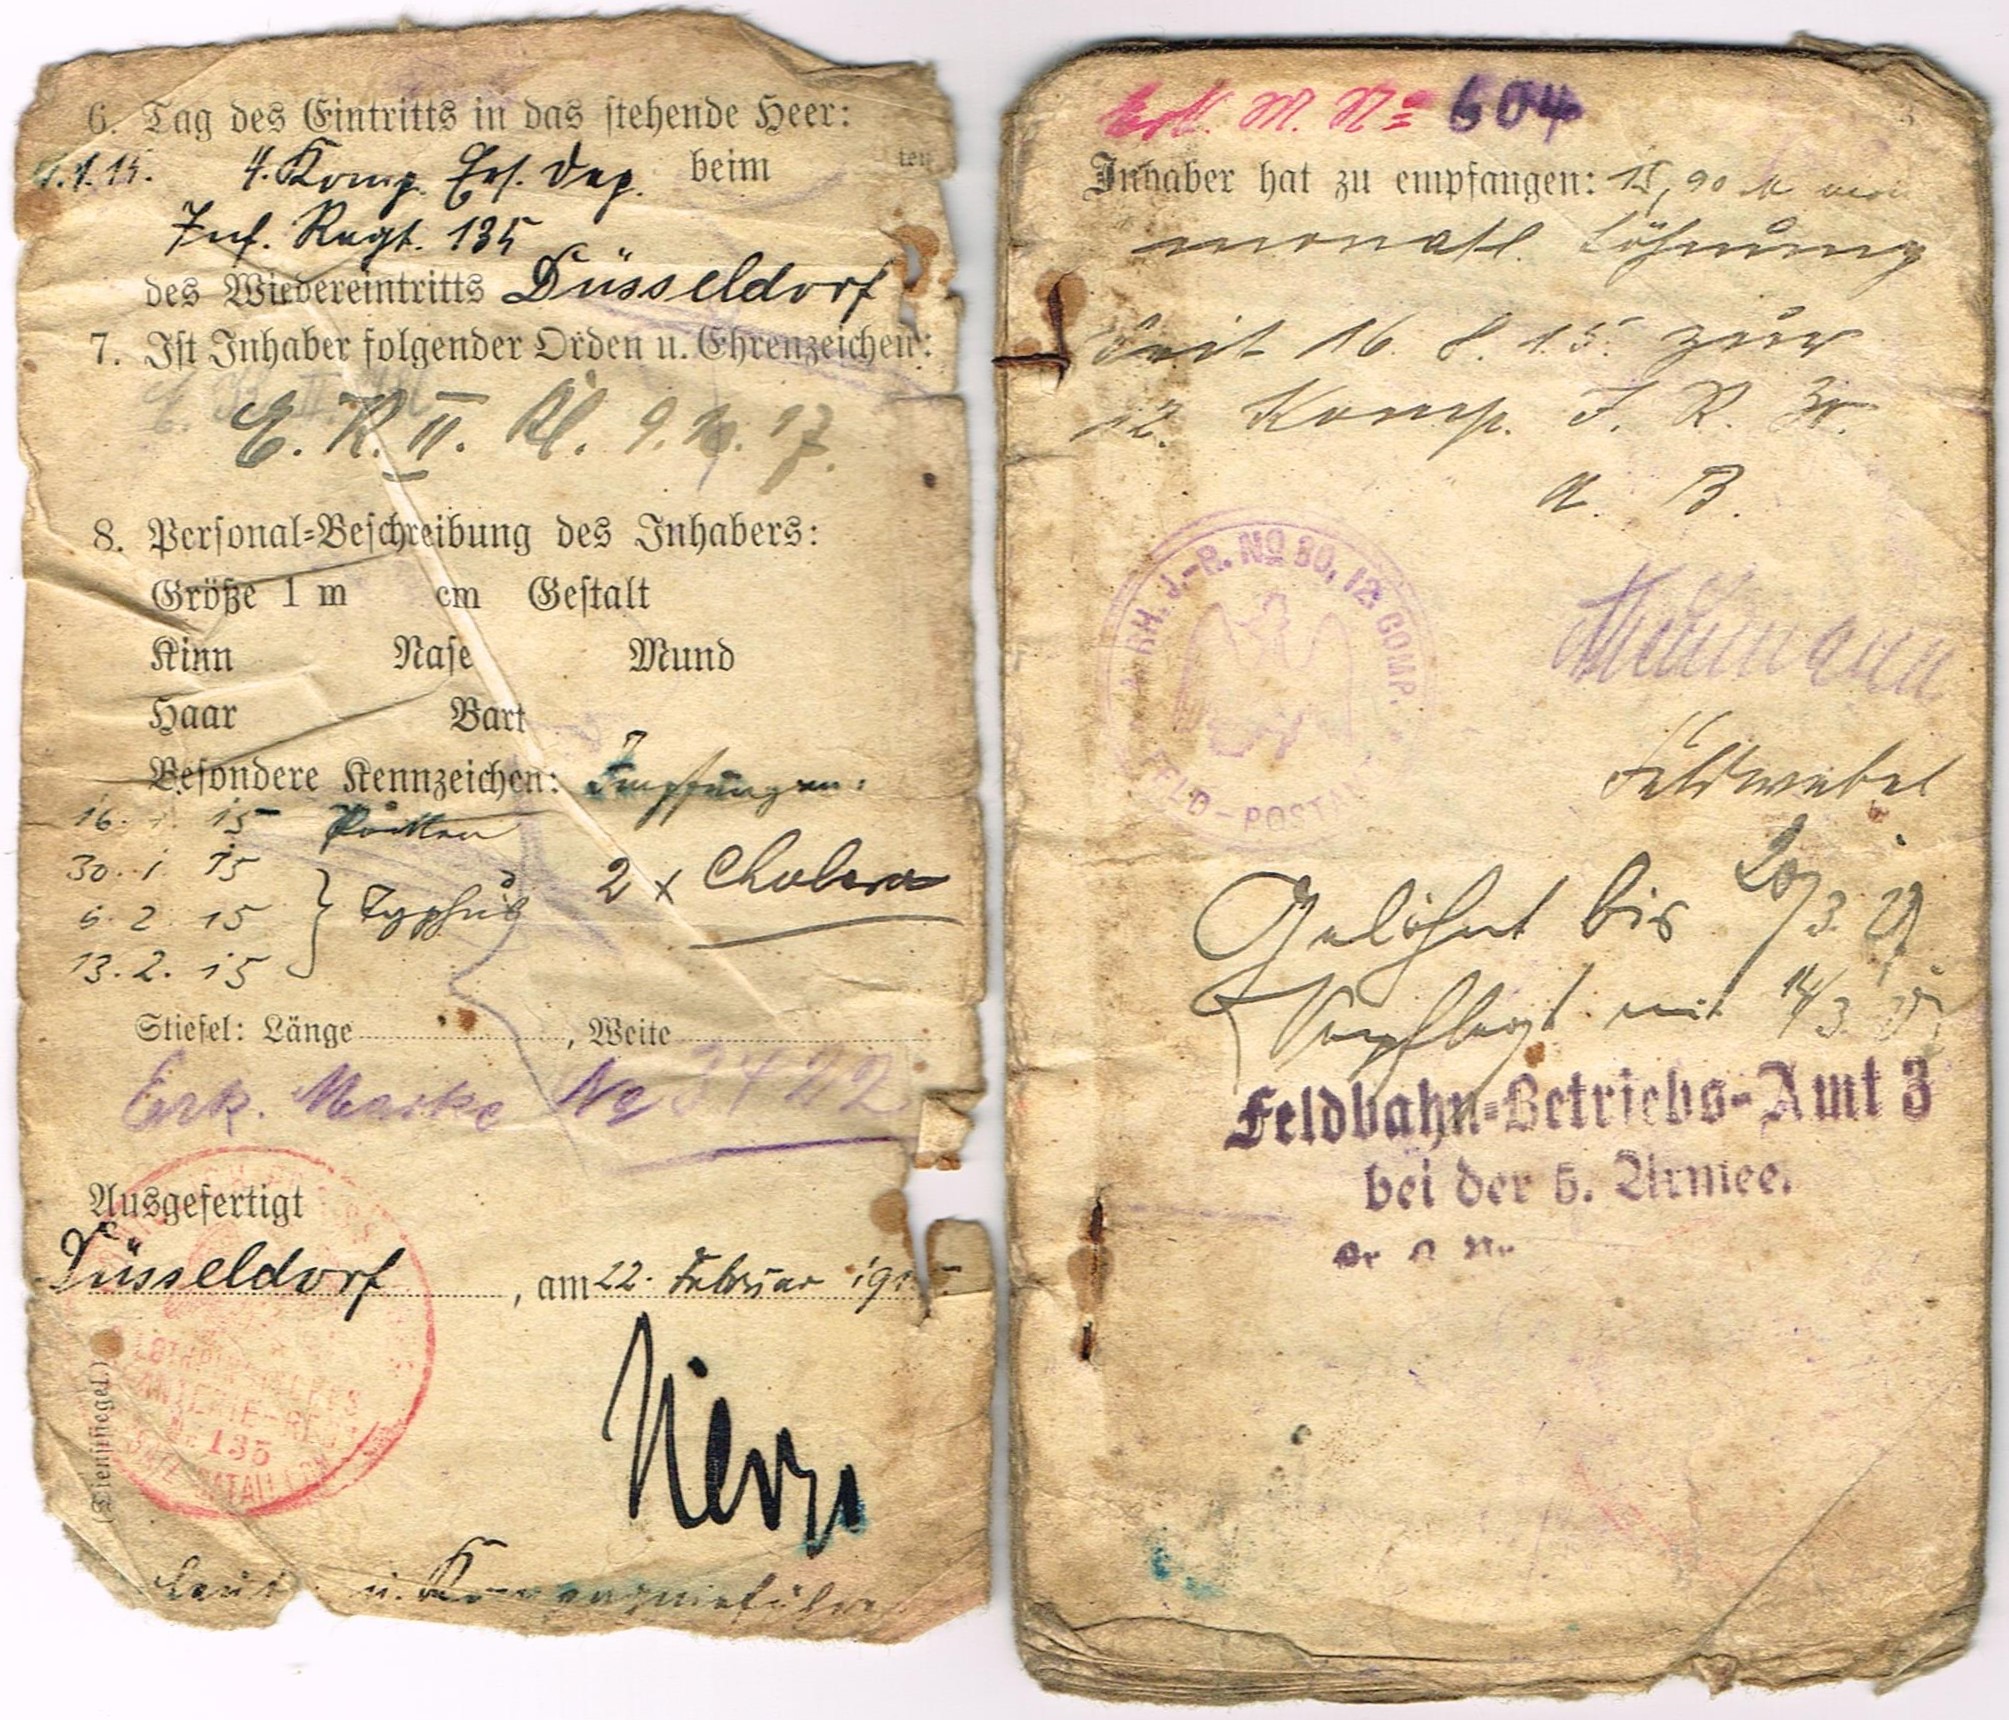 6. Tag des Eintritts in das stehende Heer:
4. Komp. Ers. Dep. beim ten
Inf. Regt. 135
des Wiedereintritts Düsseldorf
7. Ist Inhaber folgender Orden u. Ehrenzeichen:
E. K. II. Kl. 9. 17.
8. Personal-Beschreibung des Inhabers:
Größe 1 m cm Gestalt
Kinn Nase Mund
Haar Bart
Besondere Kennzeichen: Impfungen:
16. 1. 15 Pocken
30. 1 15
6. 2. 15 } Typhus 2 x Cholera
13. 2. 15
Stiefel: Länge , Weite
Erk. Marke No 3422
Ausgefertigt
Düsseldorf, am 22. Februar 1915
LOTHRINGISCHES
INFANTERIE-REGT
Nr 135
BATAILLON
(Dienstsiegel.)
u. Kompagnieführer
Erk. M. No 604
Inhaber hat zu empfangen: 15,90 M
monatl. Löhnung
Seit 16. 8. 15. zur
12. Komp. I. R. 30.
a. B.
RH. J.-R. No 30, 12. COMP.
FELD-POST
Feldwebel
Gelöhnt bis 20/3.
Verpflegt mit 14/3.
Feldbahn-Betriebs-Amt 3
bei der 5. Armee.